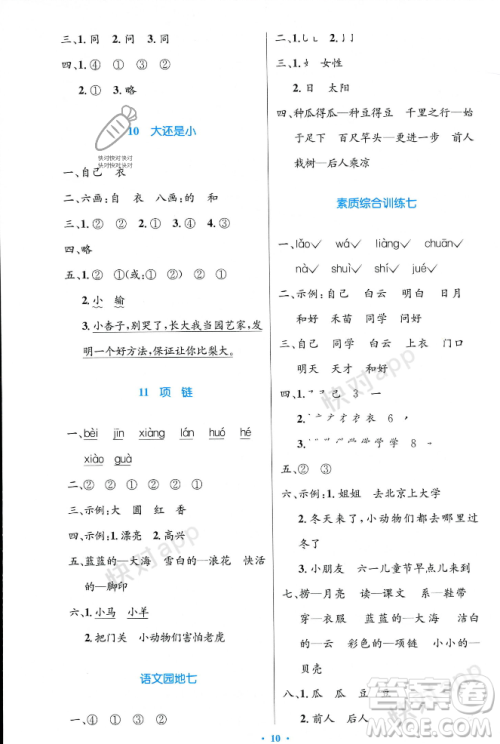 三、1. 同　2. 同　3. 同
四、1. ④　①　②　②
2. ①　3. 略
10　大还是小
一、自己　衣
二、六画：自　衣　八画：的　和
三、②　①　②　①
四、略
五、1. ①　②　①（或：①　②）　①
2. 小　输
3. 小杏子，别哭了，长大我当园艺家，发
明一个好方法，保证让你比梨大。
11　项　链
一、bèi　jīn　xiàng　lán　huó　hé
xiào　guà
二、②　①　②　②　①　①
四、示例：大　圆　红　香
三、示例：1. 漂亮　2. 高兴
五、蓝蓝的—大海　雪白的—浪花　快活
的—脚印
六、1. 小马　小羊
2. 把门关　小动物们害怕老虎
语文园地七
一、④　③　①　②
二、①　②　2.
三、1.　女性
2. 日　太阳
四、种瓜得瓜—种豆得豆　千里之行—始
于足下　百尺竿头—更进一步　前人
栽树—后人乘凉
素质综合训练七
一、lǎo✓　wá✓　liàng✓　chuān✓
nà✓　shuì✓　shí✓　jué✓
二、示例：自己　白云　明白　日月
和好　禾苗　同学　问好
三、自己　同学　白云　上衣　门口
明天　天才　和好
四、3　一
6
9
五、②　③
六、示例：1. 姐姐　去北京上大学
2. 冬天来了，小动物们都要准备过冬
了
3. 小朋友　六一儿童节早点儿来到
七、捞—月亮　读—课文　系—鞋带
穿—衣服　蓝蓝的—大海　洁白
的—云　彩色的—项链　小小的—
贝壳
八、1. 瓜　瓜　豆　豆
2. 前人　后人
10
快对快对快对
快对快对快对
快对app
快对app
快对app
答案圈
MXQE.COM